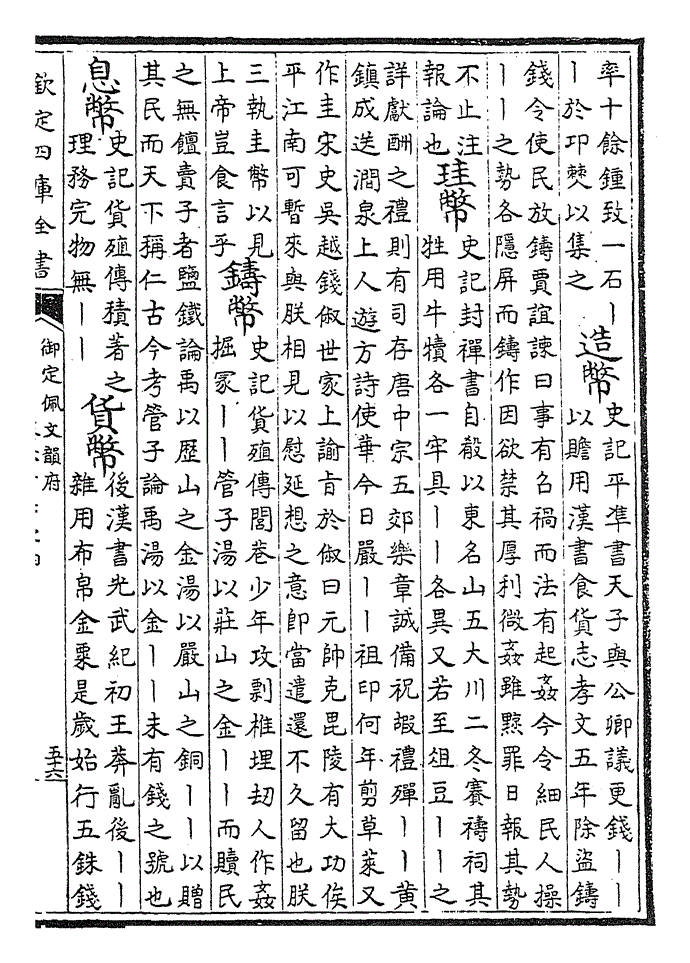 率十餘鍾致一石丨
丨於卭僰以集之
造幣
史記平準書天子與公卿議更錢丨丨
以贍用漢書食貨志孝文五年除盜鑄
錢令使民放鑄賈誼諫曰事有召禍而法有起姦今令細民人操
丨丨之勢各隱屏而鑄作因欲禁其厚利微姦雖黥罪日報其勢
不止注
報論也
珪幣
史記封禪書自殽以東名山五大川二冬賽禱祠其
牲用牛犢各一牢具丨丨各異又若至俎豆丨丨之
詳獻酬之禮則有司存唐中宗五郊樂章誠備祝嘏禮殫丨丨黄
鎮成送澗泉上人遊方詩使華今日嚴丨丨祖印何年剪草萊又
作圭宋史吳越錢俶世家上諭旨於俶曰元帥克毘陵有大功俟
平江南可暫來與朕相見以慰延想之意即當遣還不久留也朕
三執圭幣以見
上帝豈食言乎
鑄幣
史記貨殖傳閭巷少年攻剽椎埋刼人作姦
掘冡丨丨管子湯以莊山之金丨丨而贖民
之無饘賣子者鹽鐵論禹以歴山之金湯以嚴山之銅丨丨以贈
其民而天下稱仁古今考管子論禹湯以金丨丨未有錢之號也
息幣
史記貨殖傳積著之
理務完物無丨丨
貨幣
後漢書光武紀初王莽亂後丨丨
雜用布帛金粟是歲始行五銖錢
欽定四庫全書
御定佩文韻府
五十六